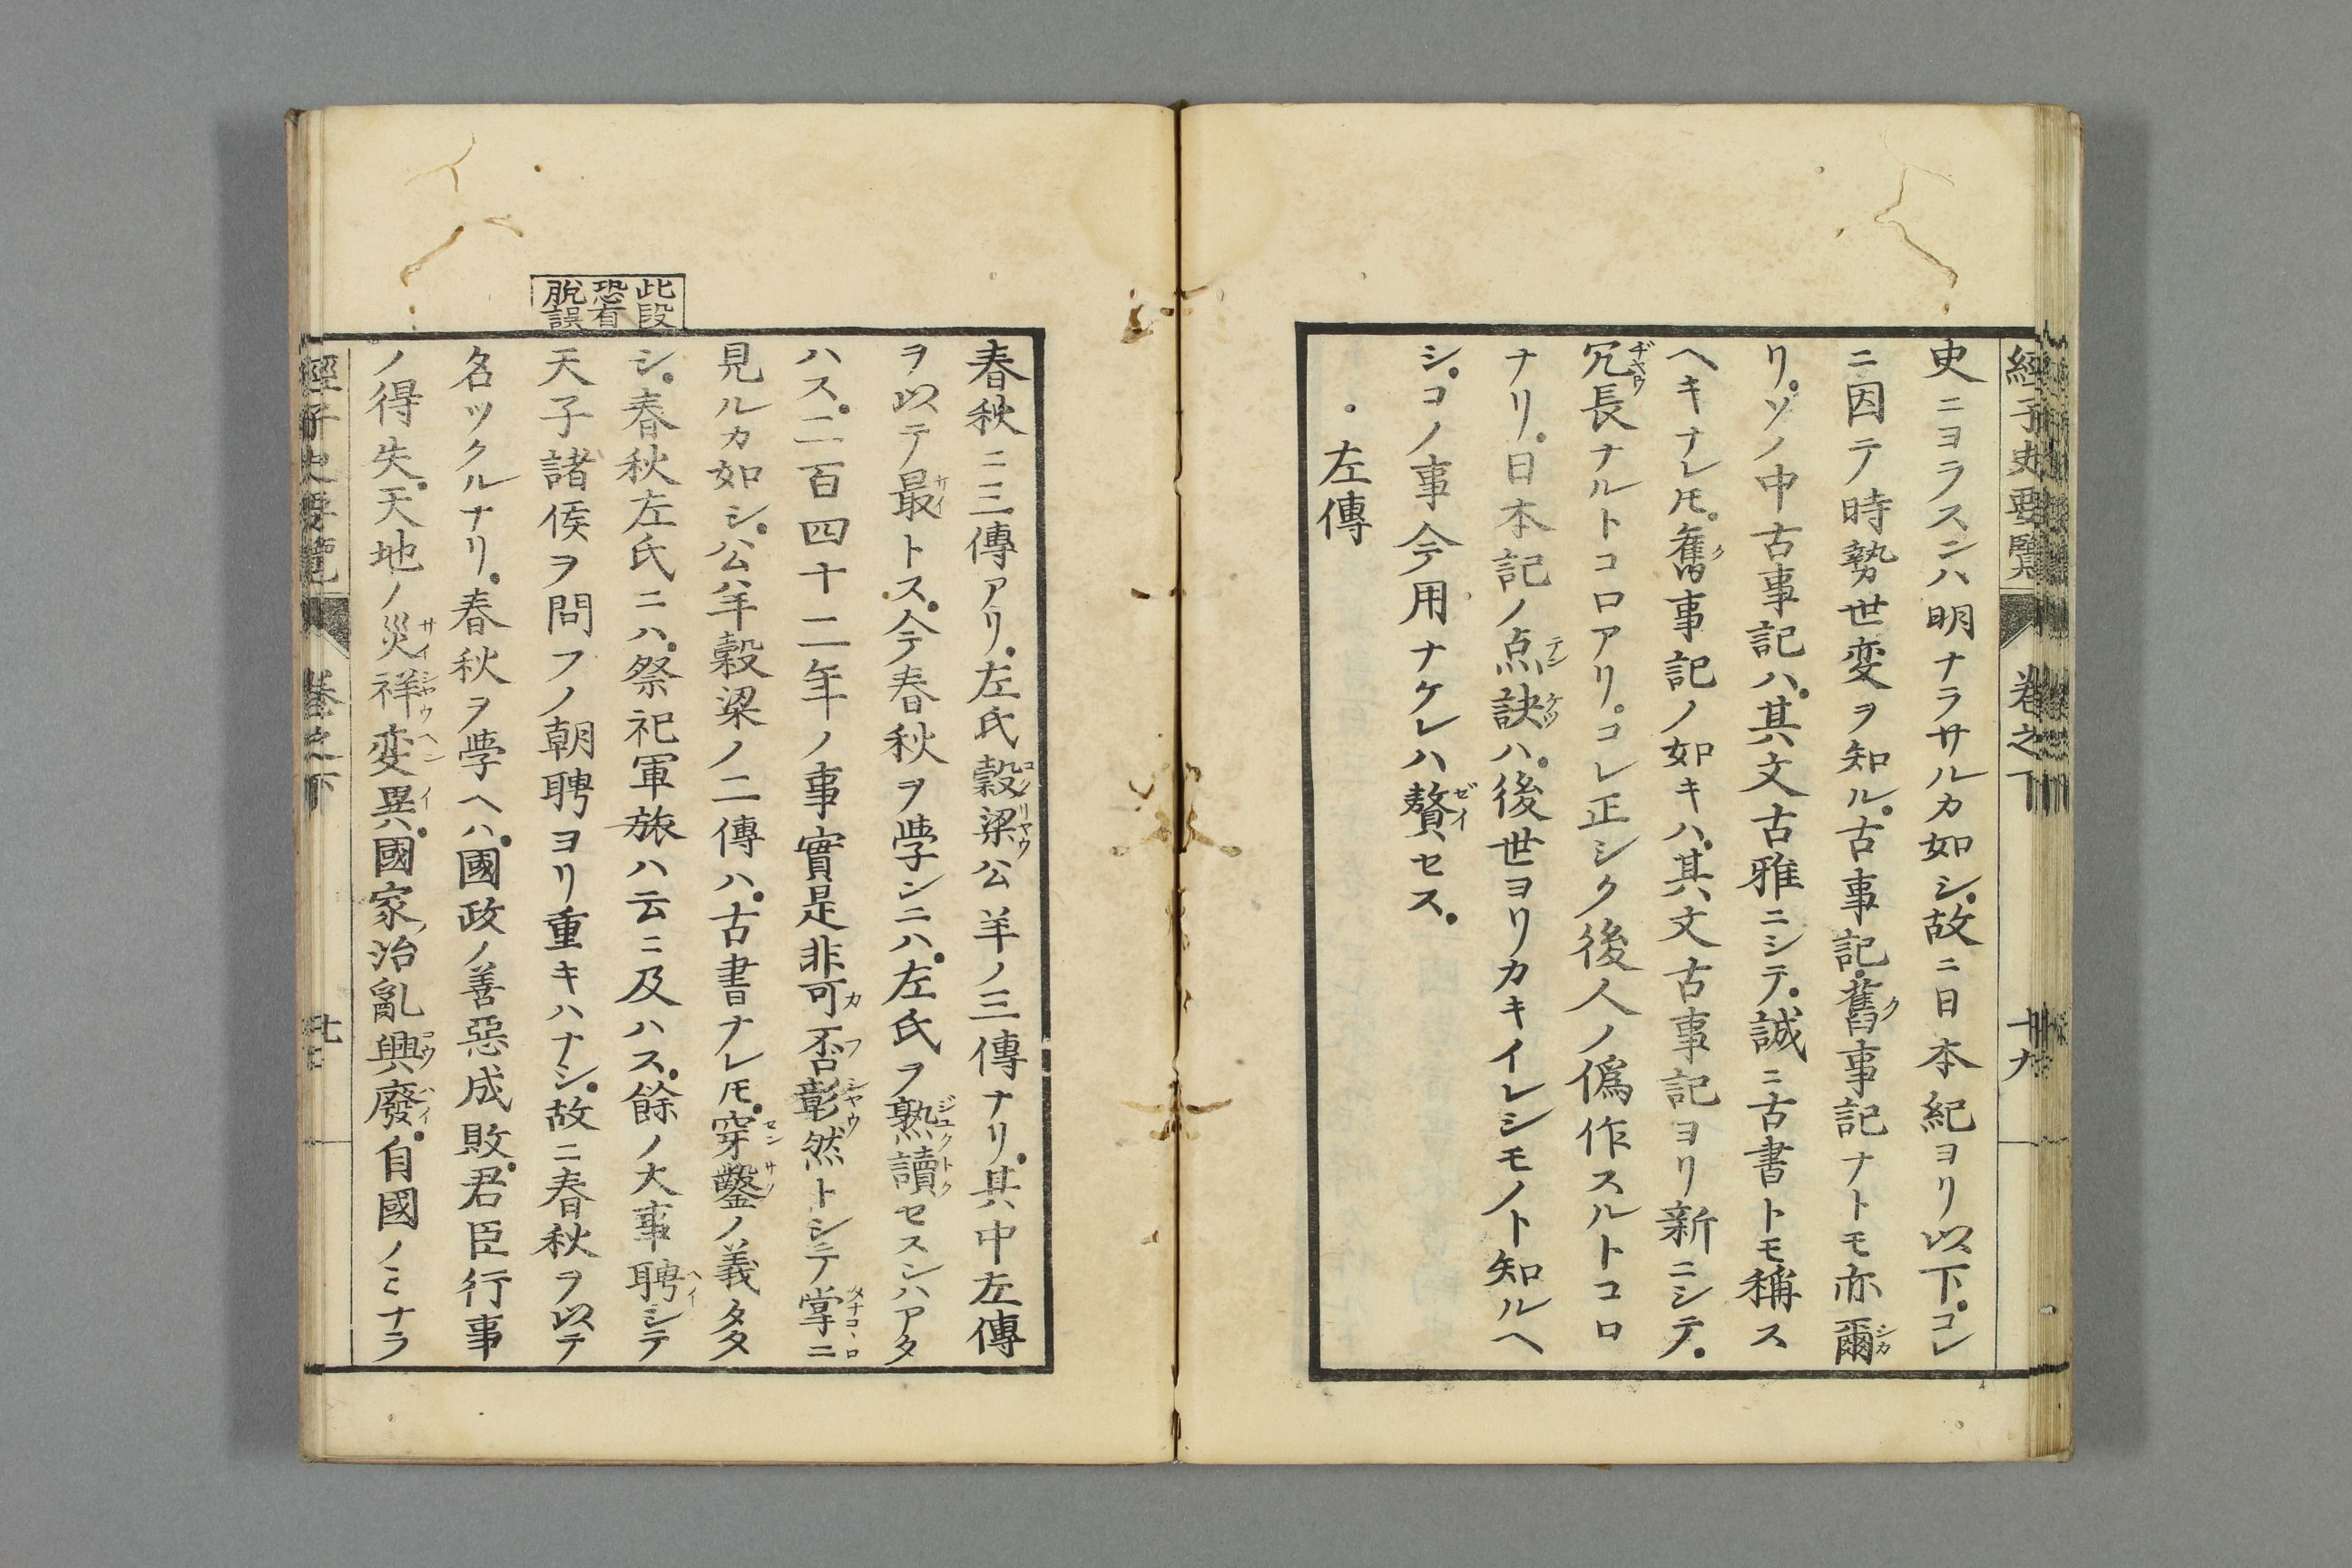 經子史要覽 卷之下 十九
史ニヨラスンハ明ナラサルカ如シ。故ニ日本紀ヨリ以下。コレ
ニ因テ時勢世変ヲ知ル。古事記。舊事記ナトモ亦爾
リ。ソノ中古事記ハ。其文古雅ニシテ。誠ニ古書トモ稱ス
ヘキナレ𪜈。舊事記ノ如キハ。其文古事記ヨリ新ニシテ。
冗長ナルトコロアリ。コレ正シク後人ノ僞作スルトコロ
ナリ。日本記ノ点訣ハ。後世ヨリカキイレシモノト知ルヘ
シ。コノ事今用ナケレハ贅セス。
左傳
春秋ニ三傳アリ。左氏穀梁公羊ノ三傳ナリ。其中左傳
ヲ以テ最トス。今春秋ヲ学ンニハ。左氏ヲ熟讀セスンハアタ
ハス。二百四十二年ノ事實是非可否彰然トシテ掌ニ
見ルカ如シ。公羊穀梁ノ二傳ハ。古書ナレ𪜈。穿鑿ノ義タタ
シ。春秋左氏ニハ。祭祀軍旅ハ云ニ及ハス。餘ノ大事聘シテ
天子諸侯ヲ問フノ朝聘ヨリ重キハナシ。故ニ春秋ヲ以テ
名ツクルナリ。春秋ヲ学ヘハ。國政ノ善惡成敗。君臣行事
ノ得失。天地ノ災祥変異。國家治亂興廢。自國ノミナラ
此段
恐有
脫誤
經子史要覽 卷之下